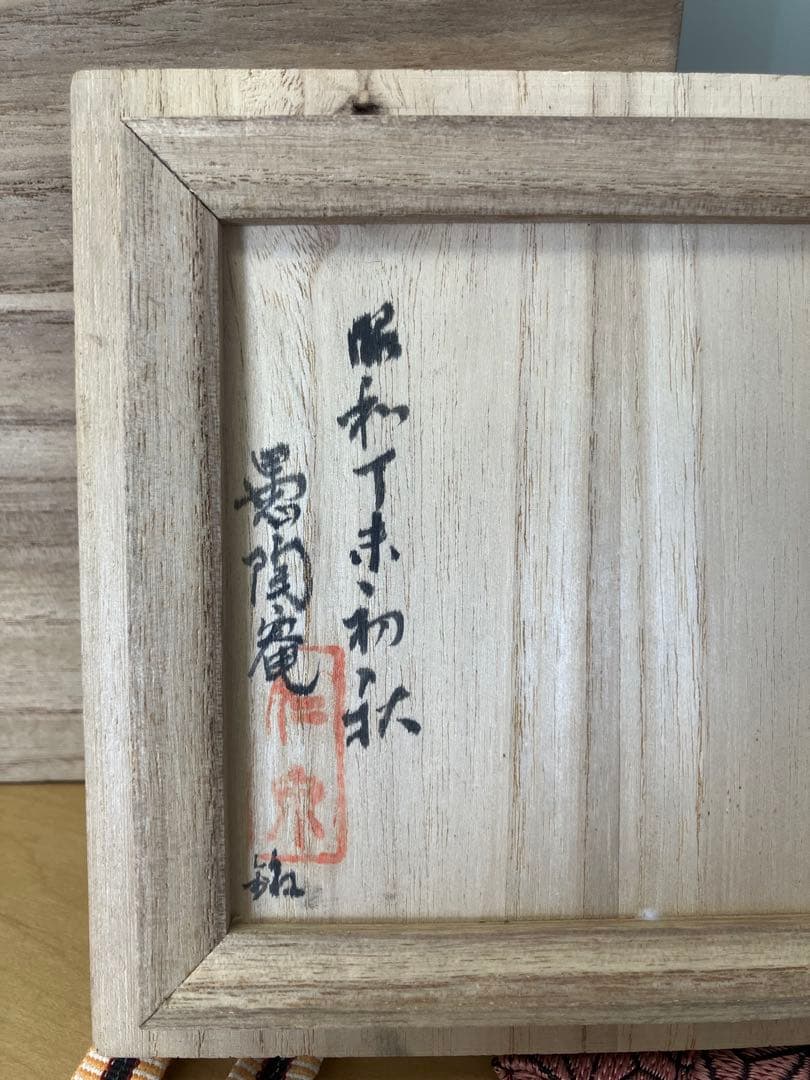 昭和丁未初秋
愚陶庵
仁泉